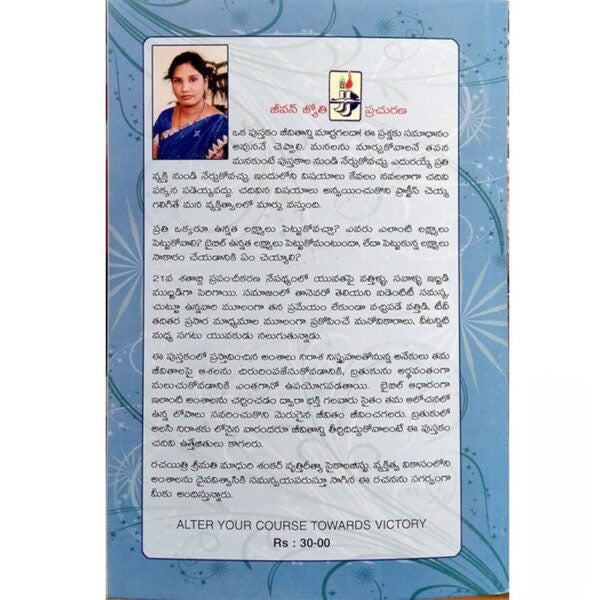 జీవన్ జ్యోతి ప్రచురణ
ఒక పుస్తకం జీవితాన్ని మార్చగలదా! ఈ ప్రశ్నకు సమాధానం
అవుననే చెప్పాలి. మనలను మార్చుకోవాలనే తపన
మనకుంటే పుస్తకాల నుండి నేర్చుకోవచ్చు ఎదురయ్యే ప్రతి
వ్యక్తి నుండి నేర్చుకోవచ్చు ఇందులోని విషయాలు కేవలం నవలలాగా చదివి
పక్కన పడెయ్యవద్దు. చదివిన విషయాలు అన్వయించుకొని ప్రాక్టీస్ చెయ్య
గలిగితే మన వ్యక్తిత్వాలలో మార్పు వస్తుంది.
ప్రతి ఒక్కరూ ఉన్నత లక్ష్యాలు పెట్టుకోవచ్చా? ఎవరు ఎలాంటి లక్ష్యాలు
పెట్టుకోవాలి? బైబిల్ ఉన్నత లక్ష్యాలు పెట్టుకోమంటుందా, లేదా పెట్టుకున్న లక్ష్యాలు
సాకారం చేయడానికి ఏం చెయ్యాలి?
21వ శతాబ్ది ప్రపంచీకరణ నేపథ్యంలో యువతపై వత్తిళ్ళు, సవాళ్ళు ఇబ్బడి
ముబ్బడిగా పెరిగాయి. సమాజంలో తానెవరో తెలియని ఐడెంటిటీ సమస్య,
చుట్టుట ఉన్నవారి మూలంగా తన ప్రమేయం లేకుండా వచ్చిపడే వత్తిడి, టీవీ
తదితర ప్రసార మాధ్యమాల మూలంగా ప్రకోపించే మనోవికారాలు, వీటన్నిటి
మధ్య సగటు యువకుడు నలుగుతున్నాడు.
ఈ పుస్తకంలో ప్రస్తావించిన అంశాలు నిరాశ నిస్పృహలతోనున్న అనేకులు తమ
జీవితాలపై ఆశలను చిగురింపజేసుకోవడానికి, బ్రతుకును అర్థవంతంగా
మలుచుకోవడానికి ఎంతగానో ఉపయోగపడతాయి. బైబిల్ ఆధారంగా
ఇలాంటి అంశాలను చర్చించడం ద్వారా భక్తి గలవారు సైతం తమ ఆలోచనలో
ఉన్న లోపాలు సవరించుకొని మెరుగైన జీవితం జీవించగలరు. బ్రతుకులో
అలసి నిరాశకు లోనైన వారందరూ జీవితాన్ని తీర్చిదిద్దుకోవాలంటే ఈ పుస్తకం
చదివి ఉత్తేజితులు కాగలరు.
రచయిత్రి శ్రీమతి మాధురి శంకర్ వృత్తిరీత్యా సైకాలజిస్టు. వ్యక్తిత్వ వికాసంలోని
అంశాలను దైవవిశ్వాసికి సమన్వయపరుస్తూ సాగిన ఈ రచనను సగర్వంగా
మీకు అందిస్తున్నారు.
ALTER YOUR COURSE TOWARDS VICTORY
Rs : 30-00